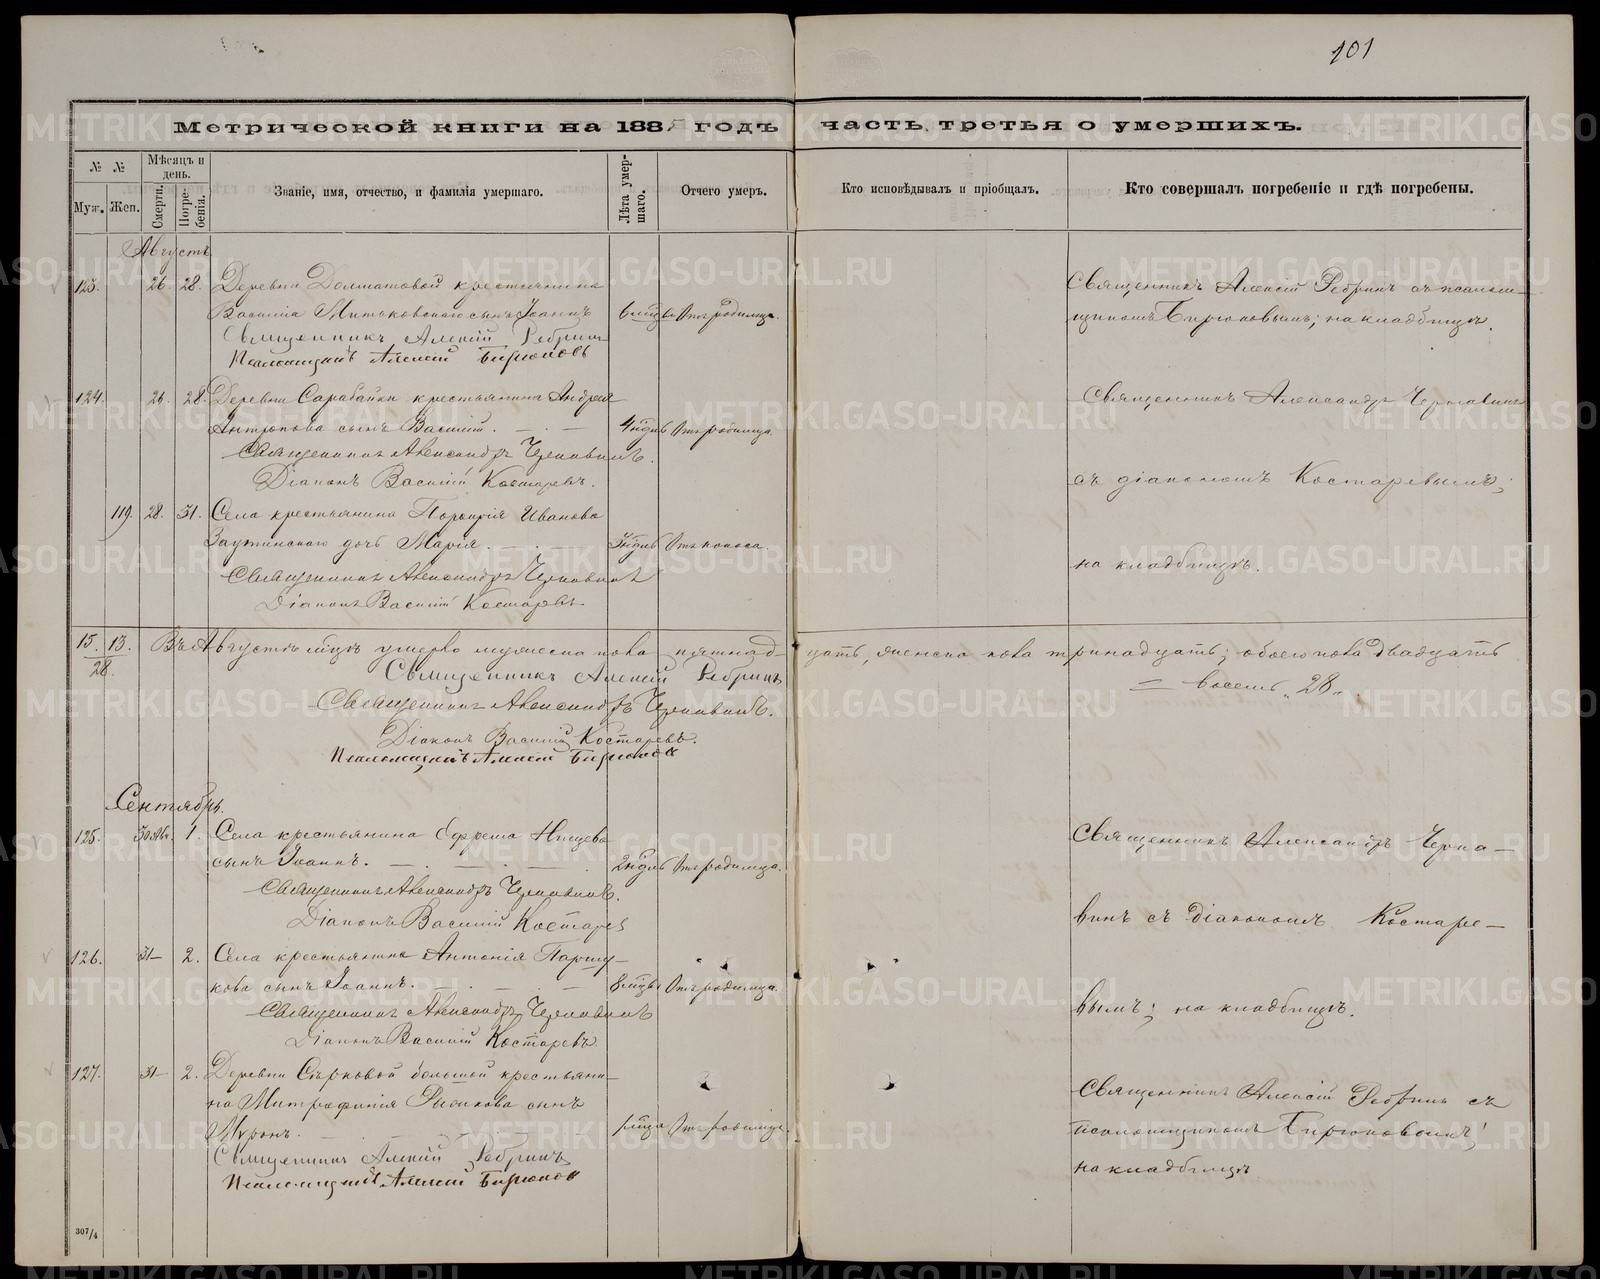 101
Метрической книги на 188 годъ часть третья о умершихъ.
№ №
Мѣсяцъ и день.
Муж. Жен.
Смерти. Погребенія.
Званіе, имя, отчество, и фамилія умершаго.
Лѣта умершаго.
Отчего умеръ.
Кто исповѣдывалъ и пріобщалъ.
Кто совершалъ погребеніе и гдѣ погребены.
Августъ
123. 26. 28. Деревни Долматовой крестьянина
Василія Митьковскаго сынъ Іоаннъ 6 мцъ Отъ родимца.
Священникъ Алексій Ребринъ
Псаломщикъ Алексій Бирюковъ
Священникъ Алексій Ребринъ съ псалом-
щикомъ Бирюковымъ; на кладбищѣ.
124. 26. 28. Деревни Сарабайки крестьянина Андрея
Антропова сынъ Василій. 4 нѣдль Отъ родимца.
Священникъ Александръ Чернавинъ.
Діаконъ Василій Костаревъ.
Священникъ Александръ Чернавинъ
съ діакономъ Костаревымъ;
на кладбищѣ.
119. 28. 31. Села крестьянина Порфирія Иванова
дочь Марія. 3 нѣдль Отъ поноса.
Священникъ Александръ Чернавинъ
Діаконъ Василій Костаревъ
15. 13. Въ Августѣ мцѣ умерло мужеска пола пятнадцать, женска пола тринадцать; обоего пола двадцать
28. = восемь „28„
Священникъ Алексій Ребринъ
Священникъ Александръ Чернавинъ.
Діаконъ Василій Костаревъ.
Псаломщикъ Алексій Бирюковъ
Сентябрь.
125. 30 Авг. 1. Села крестьянина Ефрема Нищева
сынъ Іоаннъ. 2 нѣдль Отъ родимца.
Священникъ Александръ Чернавинъ.
Діаконъ Василій Костаревъ
Священникъ Александръ Черна-
винъ съ діакономъ Костаре-
вымъ; на кладбищѣ.
126. 31 2. Села крестьянина Антонія Паршу-
кова сынъ Іоаннъ. 8 мцъ Отъ родимца.
Священникъ Александръ Чернавинъ
Діаконъ Василій Костаревъ
127. 31 2. Деревни Сѣрковой большой крестьяни-
на Митрофанія Рысикова сынъ
Муронъ. 1 мца Отъ родимца.
Священникъ Алексій Ребринъ
Псаломщикъ Алексій Бирюковъ
Священникъ Алексій Ребринъ съ
псаломщикомъ Бирюковымъ;
на кладбищѣ
307/4
METRIKI.GASO-URAL.RU